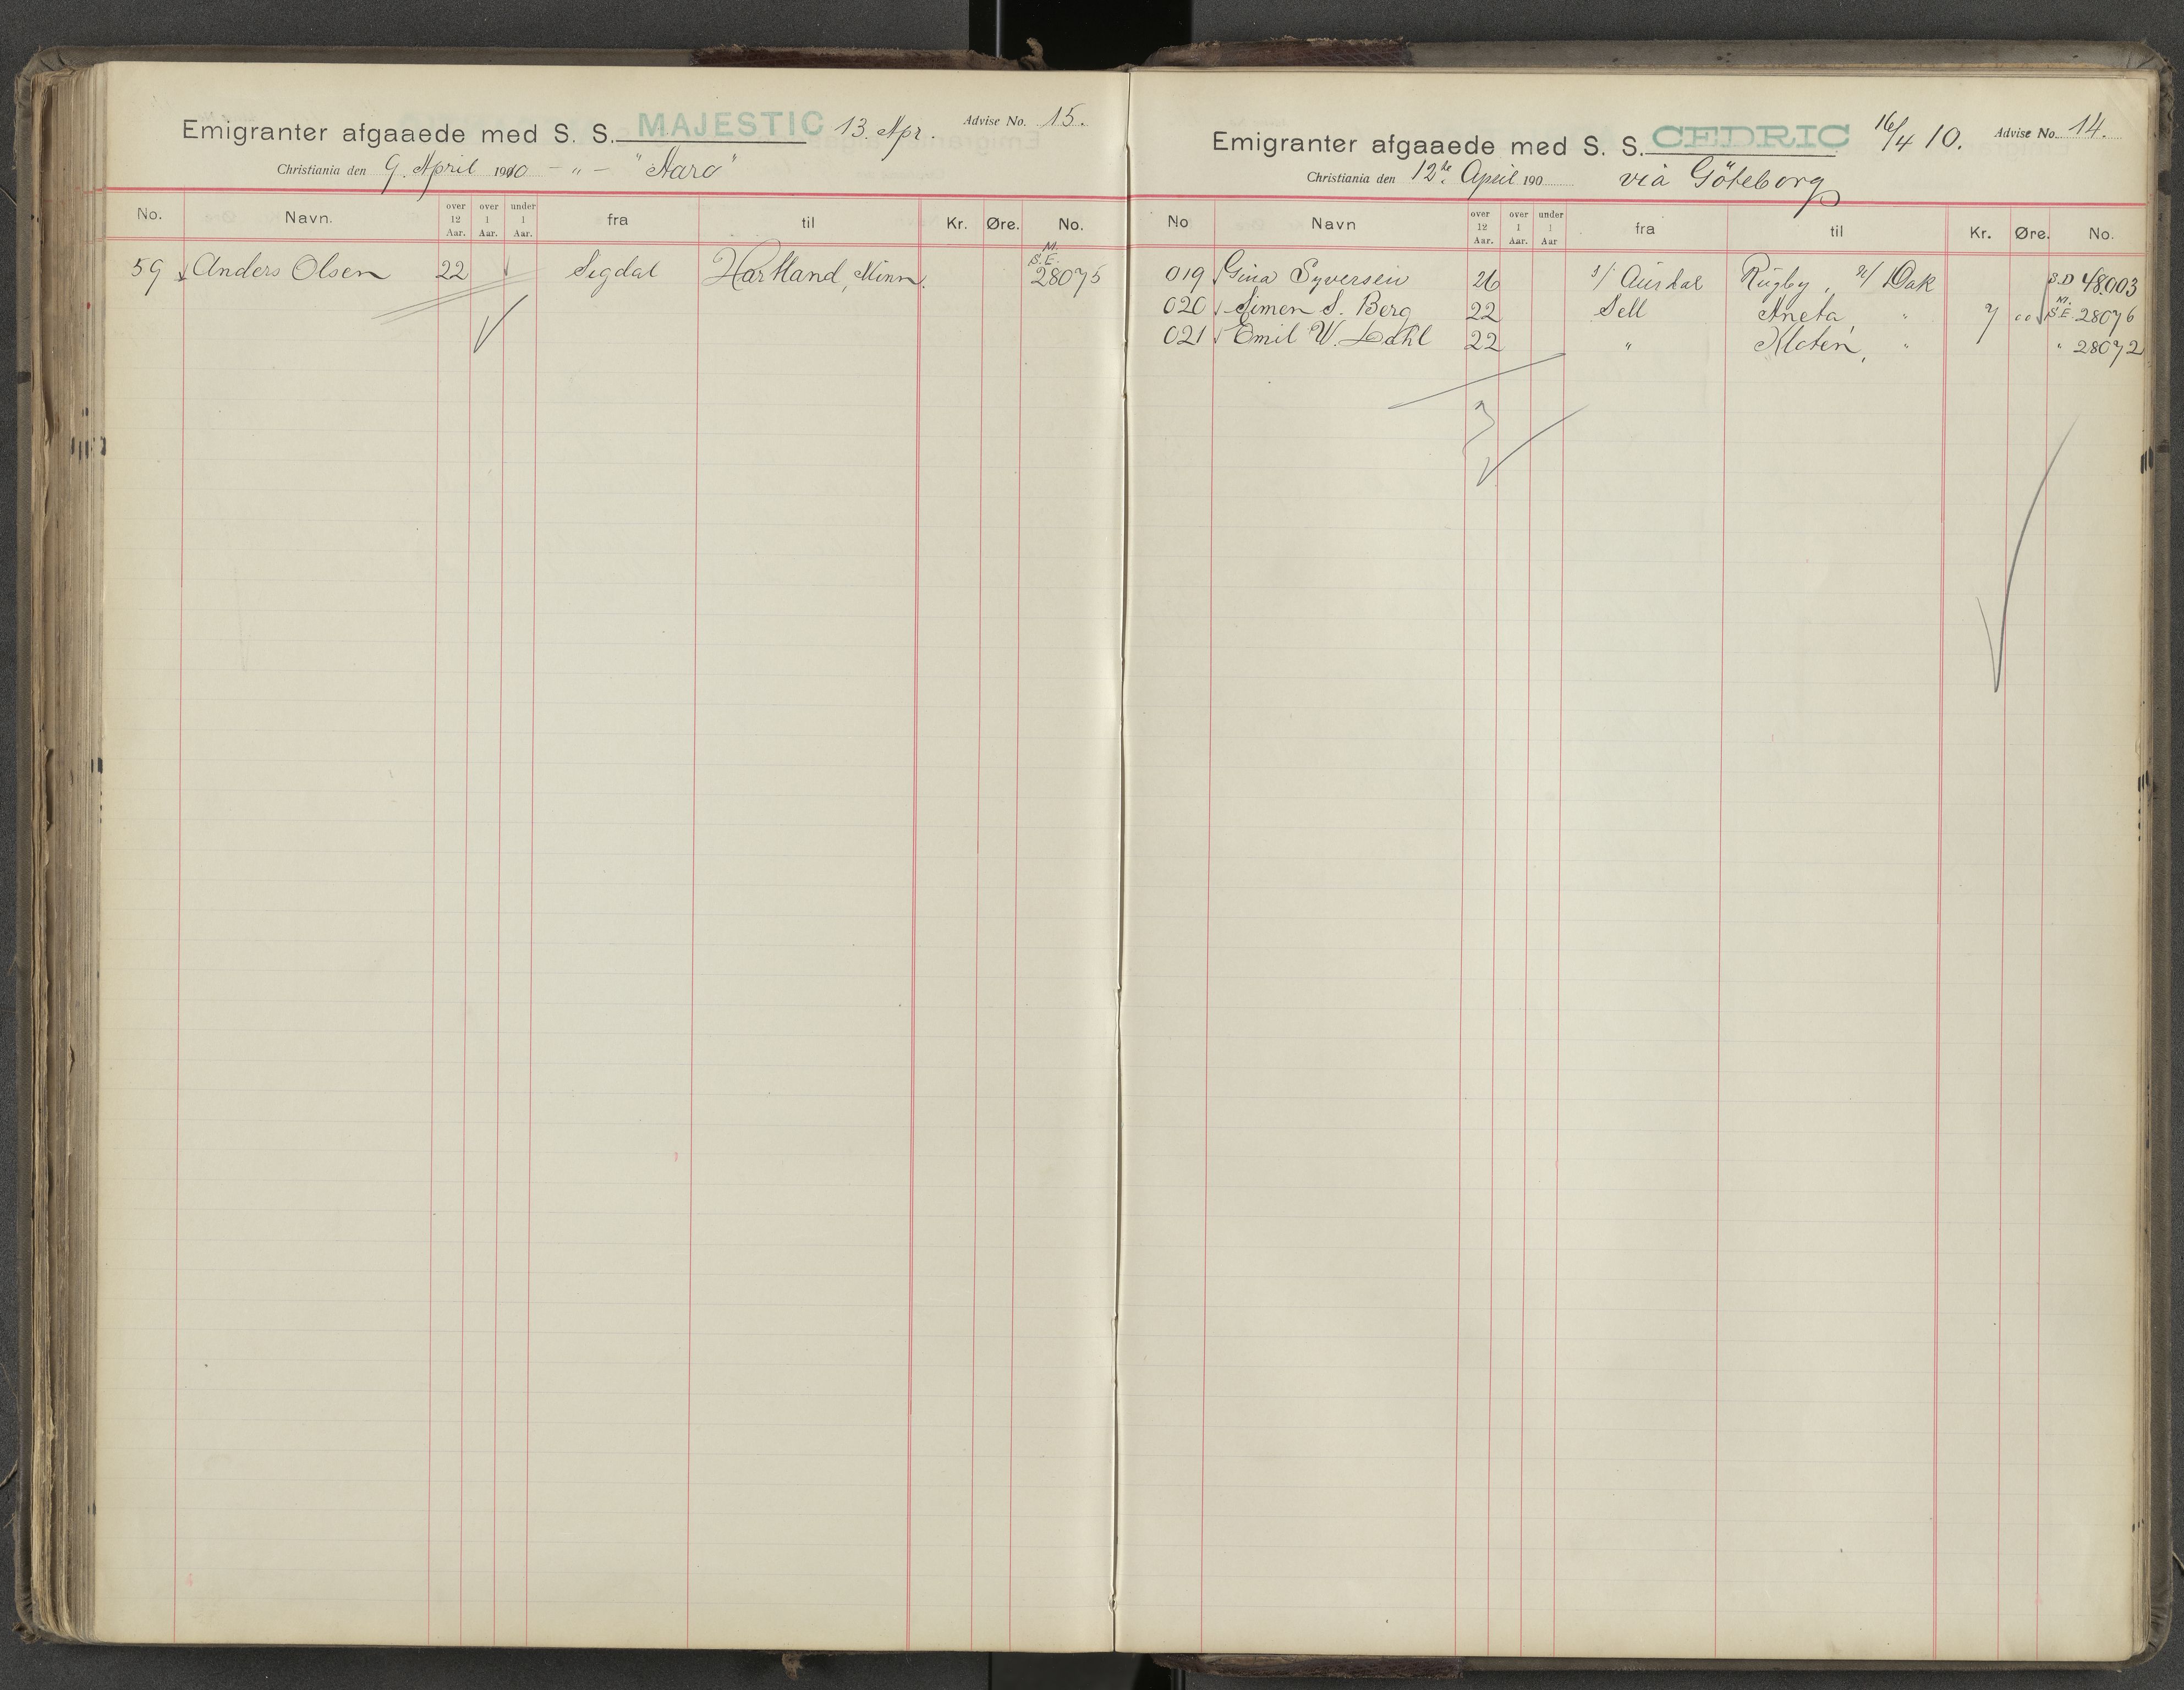 Emigranter afgaaede med S. S. MAJESTIC 13. Apr. Advise No. 15.
Christiania den 9. April 1910 - " - "Aaro"
No. Navn. over 12 Aar. over 1 Aar. under 1 Aar. fra til Kr. Øre. No.
59 Anders Olsen 22 Sigdal Hartland, Minn. M. S.E. 28075
Emigranter afgaaede med S. S. CEDRIC 16/4 10. Advise No. 14.
Christiania den 12te April 190 via Göteborg
No Navn over 12 Aar. over 1 Aar. under 1 Aar fra til Kr. Øre. No.
019 Gina Syversen 26 s/ Aurdal Rugby, n/ Dak S.D 48003
020 Simen S. Berg 22 Sell Aneta, " 7 " M. S.E. 28076
021 Emil W. Dahl 22 " Kloten, " " 28072
3